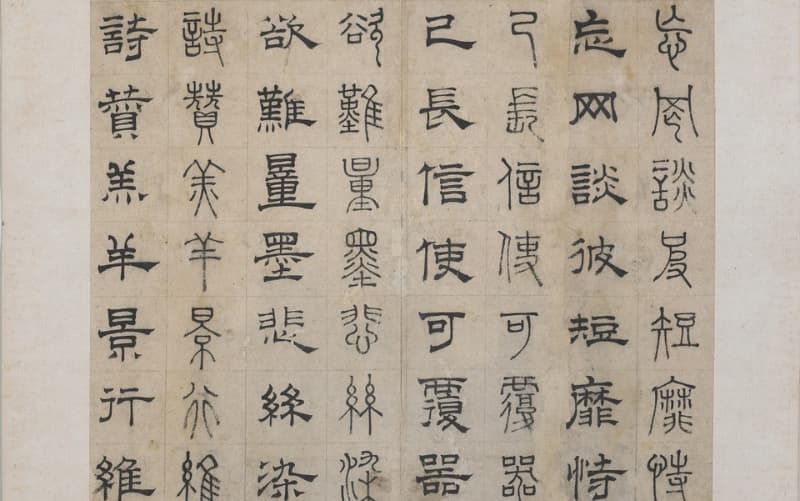 忘网談皮短靡恃
忘网談彼短靡恃
己長信使可覆器
己長信使可覆器
欲難量墨悲絲染
欲難量墨悲絲染
詩贊羔羊景行維
詩贊羔羊景行維